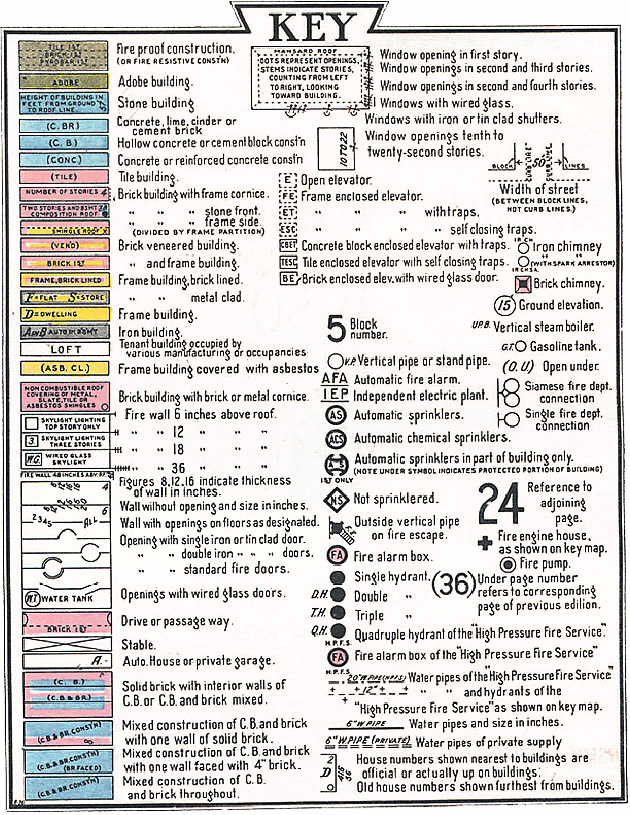 KEY
TILE 1ST
BRICK 1ST
PYROBAR 1ST
Fire proof construction.
(OR FIRE RESISTIVE CONST'N)
ADOBE
Adobe building.
HEIGHT OF BUILDING IN
FEET FROM GROUND
TO ROOF LINE.
Stone building
(C.BR)
Concrete, lime, cinder or
cement brick
(C. B.)
Hollow concrete or cement block const'n
(CONC)
Concrete or reinforced concrete const'n
(TILE)
Tile building.
NUMBER OF STORIES 4
Brick building with frame cornice.
TWO STORIES AND BSM'T 2B
COMPOSITION ROOF
" " " stone front.
" " " frame side.
(DIVIDED BY FRAME PARTITION)
SHINGLE ROOF X
(VEN'D)
Brick veneered building.
BRICK 1ST
" and frame building.
FRAME, BRICK LINED
Frame building, brick lined.
F=FLAT S=STORE
" " metal clad.
D=DWELLING
Frame building.
AUTO IN BSM'T
Iron building.
LOFT
Tenant building occupied by
various manufacturing or occupancies
(ASB. CL.)
Frame building covered with asbestos
NON COMBUSTIBLE ROOF
COVERING OF METAL,
SLATE, TILE OR
ASBESTOS SHINGLES
Brick building with brick or metal cornice.
SKYLIGHT LIGHTING
TOP STORY ONLY
Fire wall 6 inches above roof.
3 SKYLIGHT LIGHTING
THREE STORIES
" " 12 " " "
WG WIRED GLASS
SKYLIGHT
" " 18 " " "
" " 36 " " "
FIRE WALL 48 INCHES ABV. RF.
Figures 8,12,16 indicate thickness
of wall in inches.
Wall without opening and size in inches.
2345 ALL
Wall with openings on floors as designated.
Opening with single iron or tin clad door.
" " double iron " " " doors.
" " standard fire doors.
WT WATER TANK
Openings with wired glass doors.
BRICK 1ST
Drive or passage way.
Stable.
A.
Auto. House or private garage.
(C. B.)
(C.B.& BR.)
Solid brick with interior walls of
C.B. or C.B. and brick mixed.
(C.B.& BR. CONST'N)
Mixed construction of C.B. and brick
with one wall of solid brick.
(C.B.& BR. CONST'N)
(BR. FACED)
Mixed construction of C.B. and brick
with one wall faced with 4" brick.
(C.B.& BR. CONST'N)
Mixed construction of C.B.
and brick throughout.
MANSARD ROOF
DOTS REPRESENT OPENINGS,
STEMS INDICATE STORIES,
COUNTING FROM LEFT
TO RIGHT, LOOKING
TOWARD BUILDING.
Window opening in first story.
Window openings in second and third stories.
Window openings in second and fourth stories.
Windows with wired glass.
Windows with iron or tin clad shutters.
10 TO 22
Window openings tenth to
twenty-second stories.
BLOCK 50' LINES
Width of street
(BETWEEN BLOCK LINES,
NOT CURB LINES.)
E Open elevator.
FE Frame enclosed elevator.
ET " " " with traps.
ESC " " " self closing traps.
CBET Concrete block enclosed elevator with traps.
TESC Tile enclosed elevator with self closing traps.
BE Brick enclosed elev. with wired glass door.
IR. CH. Iron chimney
IR CH S.A. " " (WITH SPARK ARRESTOR)
Brick chimney.
15 Ground elevation.
5 Block
number.
UP.B. Vertical steam boiler.
G.T. Gasoline tank.
V.P. Vertical pipe or stand pipe.
(O.U) Open under.
AFA Automatic fire alarm.
IEP Independent electric plant.
Siamese fire dept.
connection
AS Automatic sprinklers.
Single fire dept.
connection
ACS Automatic chemical sprinklers.
AS Automatic sprinklers in part of building only.
1ST ONLY (NOTE UNDER SYMBOL INDICATES PROTECTED PORTION OF BUILDING)
NS Not sprinklered.
24 Reference to
adjoining
page.
Outside vertical pipe
on fire escape.
F.E.
Fire engine house,
as shown on key map.
FA Fire alarm box.
Fire pump.
Single hydrant.
(36) Under page number
refers to corresponding
page of previous edition.
D.H. Double "
T.H. Triple "
Q.H. Quadruple hydrant of the "High Pressure Fire Service".
H.P.F.S.
FA Fire alarm box of the "High Pressure Fire Service"
H.P.F.S.
20" W. PIPE (H.P.F.S.) Water pipes of the "High Pressure Fire Service"
12" " " and hydrants of the
"High Pressure Fire Service" as shown on key map.
6" W. PIPE Water pipes and size in inches.
6" W. PIPE (PRIVATE) Water pipes of private supply
2
D
House numbers shown nearest to buildings are
official or actually up on buildings.
Old house numbers shown furthest from buildings.